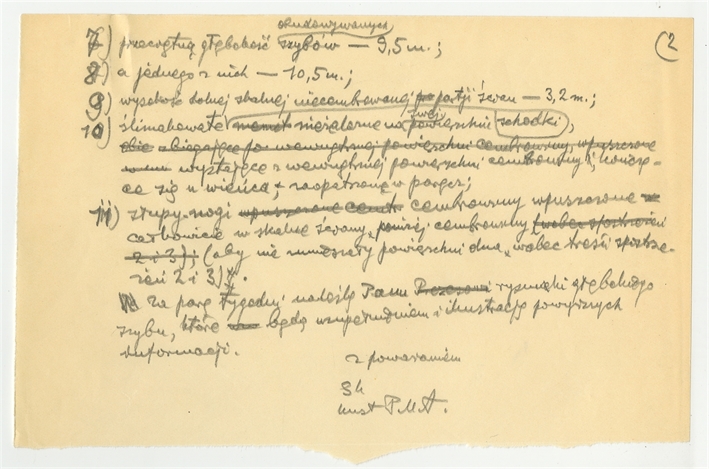 odbudowywanych (2
7) przeciętną głębokość szybów — 9,5 m.;
8) a jednego z nich — 10,5 m.;
9) wysokość dolnej skalnej niecembrowanej partji ścian — 3,2 m.;
10) ślimakowate niezależne w swej powierzchni schodki,
wystające z wewnętrznej powierzchni cembrowiny i kończą-
ce się u wieńca, zaopatrzone w poręcz;
11) słupy-nogi cembrowiny wpuszczone
całkowicie w skalne ściany, poniżej cembrowiny (wobec spostrzeżeń
2 i 3); (aby nie umniejszały powierzchni dna, wobec treści spostrze-
żeń 2 i 3).
Za parę tygodni nadeślę Panu rysunki głębokiego
szybu, które będą uzupełnieniem i ilustracją powyższych
informacji.
z poważaniem
Sk
kust P.M.A.